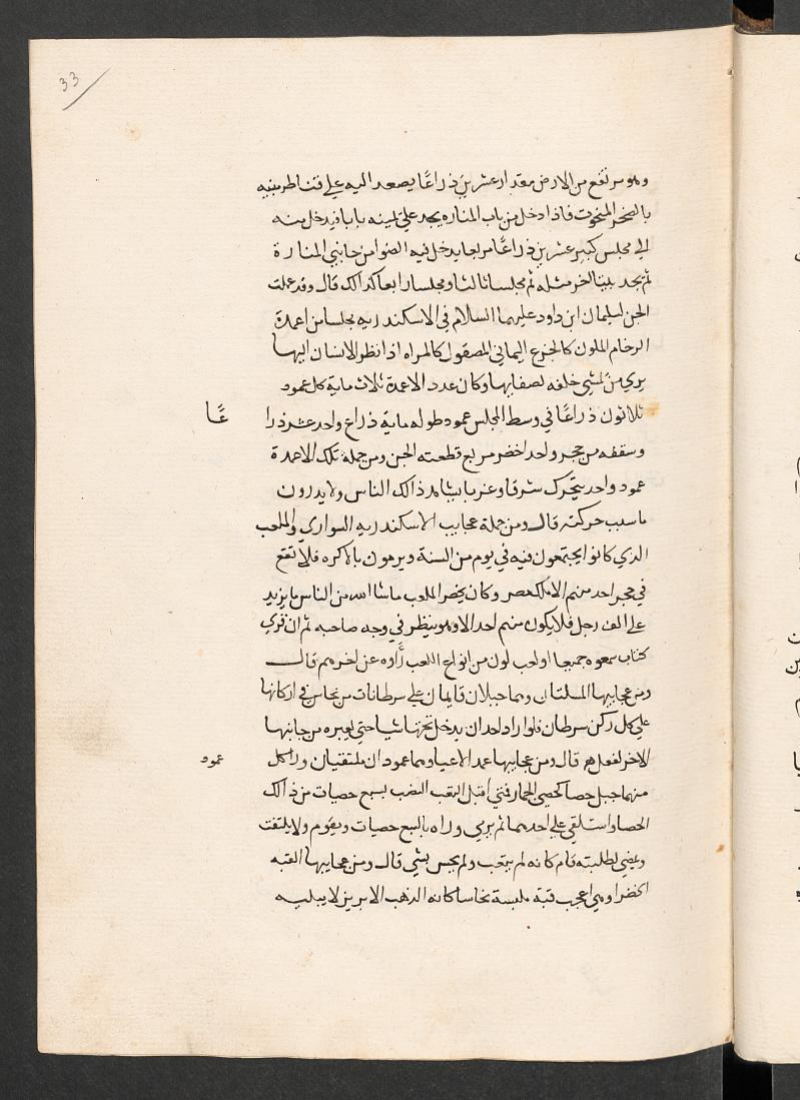 33
وهو مرتفع من الارض مقدار عشرين ذراعًا يصعد اليه علي قناطر مبنيه
بالصخر المنحوت فاذا دخل من باب المناره يجد علي يمينه بابا فيدخل منه
الي مجلس كبير عشرين ذراعًا مربعا يدخل فيه الضوا من جانبي المنارة
ثم يجد بيتا اخر مثله ثم مجلسا ثالثا ومجلسا رابعا كذالك قال وقد عملت
الجن لسليمان ابن داود عليهما السلام في الاسكندريه مجلسا من اعمدة
الرخام الملون كالجزع اليماني المصقول كالمراه اذا نظر الانسان اليها
يري من يمشي خلفه لصفايها وكان عدد الاعمدة ثلاث ماية كل عمود
ثلاثون ذراعًا في وسط المجلس عمود طوله ماية ذراع واحد عشر ذرا
عًا
وسقفه من حجر واحد اخضر مربع قطعته الجن ومن جملة تلك الاعمدة
عمود واحد يتحرك شرقا وغربا يشاهد ذالك الناس ولا يدرون
ما سبب حركته قال ومن جملة عجايب الاسكندريه السواري والملعب
الذي كانوا يجتمعون فيه في يوم من السنة ويرمون بالاكره فلا تقع
في حجر احد منهم الا ملك مصر وكان يحضر الملعب ماشا الله من الناس ما يزيد
علي الف رجل فلا يكون منهم احد الا وهو ينظر في وجه صاحبه ثم ان قري
كتاب سمعوه جميعا او لعب لون من انواع اللعب رَأوه عن اخرهم قال
ومن عجايبها المسلتان وهما جبلان قايمان علي سرطانات من نحاس في اركانها
علي كل ركن سرطان فلو اراد احد ان يدخل تحتها شيا حتي يعبره من جانبها
الاخر لفعل قال ومن عجايبها عمد الاعيا وهما عمودان ملتقيان ورا كل
عمود
منهما جبل حصا كحصي الجمار فتي اقبل التعب النصب بسبع حصيات من ذالك
الحصا واستلقي علي احدهما ثم يرمي وراه بالسبع حصيات ويقوم ولا يلتفت
ويمضي لطلبته قام كانه لم يتعب ولم يحس بشي قال ومن عجايبها القبه
الخضرا وهي اعجب قبة ملبسة نحاسا كانه الذهب الابريز لا يبليه